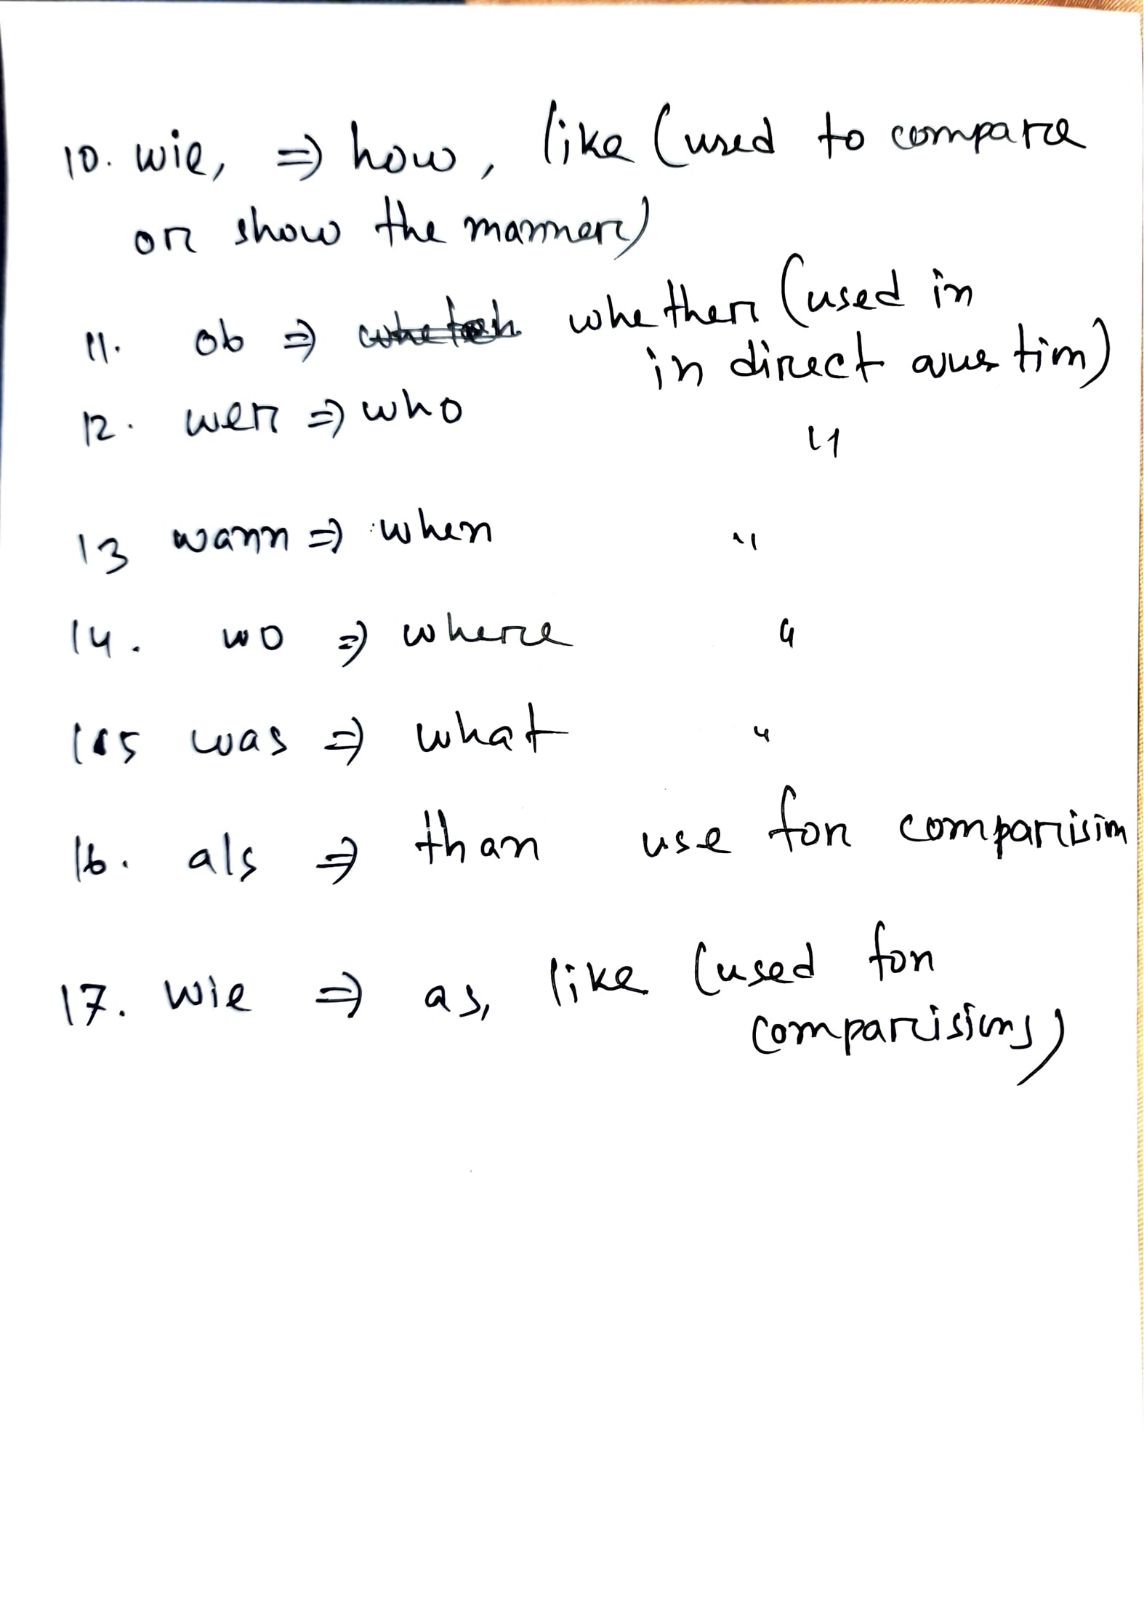 10. wie, => how, like (used to compare
or show the manner)
11. ob => whether (used in
in direct question)
12. wer => who "
13 wann => when "
14. wo => where "
15 was => what "
16. als => than use for comparision
17. wie => as, like (used for
comparisions)